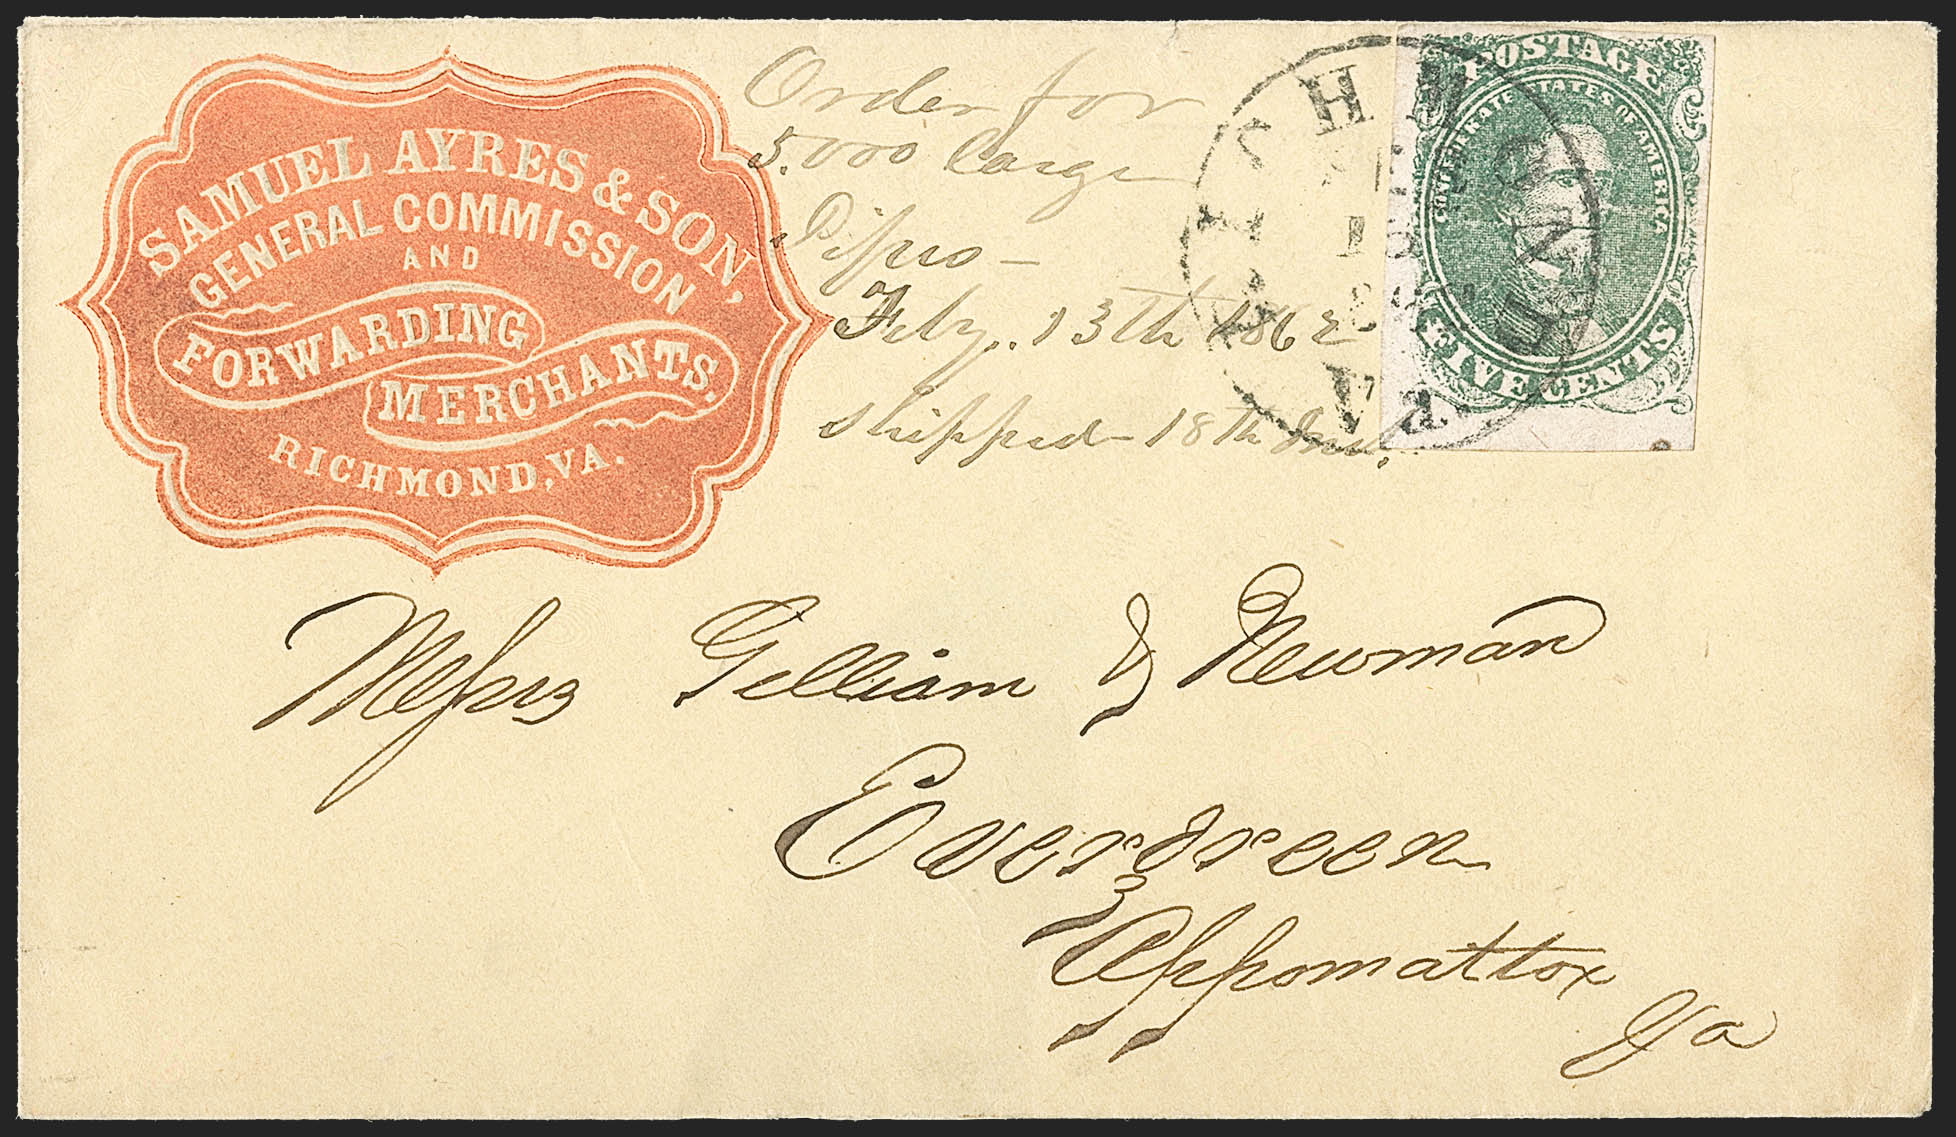 SAMUEL AYRES & SON,
GENERAL COMMISSION
AND
FORWARDING
MERCHANTS.
RICHMOND, VA.
Order for
5.000 large
Feby. 13th 1862
shipped 18th
POSTAGE
CONFEDERATE STATES OF AMERICA
FIVE CENTS
RICHMOND
Va.
Messrs Gilliam & Newman
Evergreen
Appomattox
Va